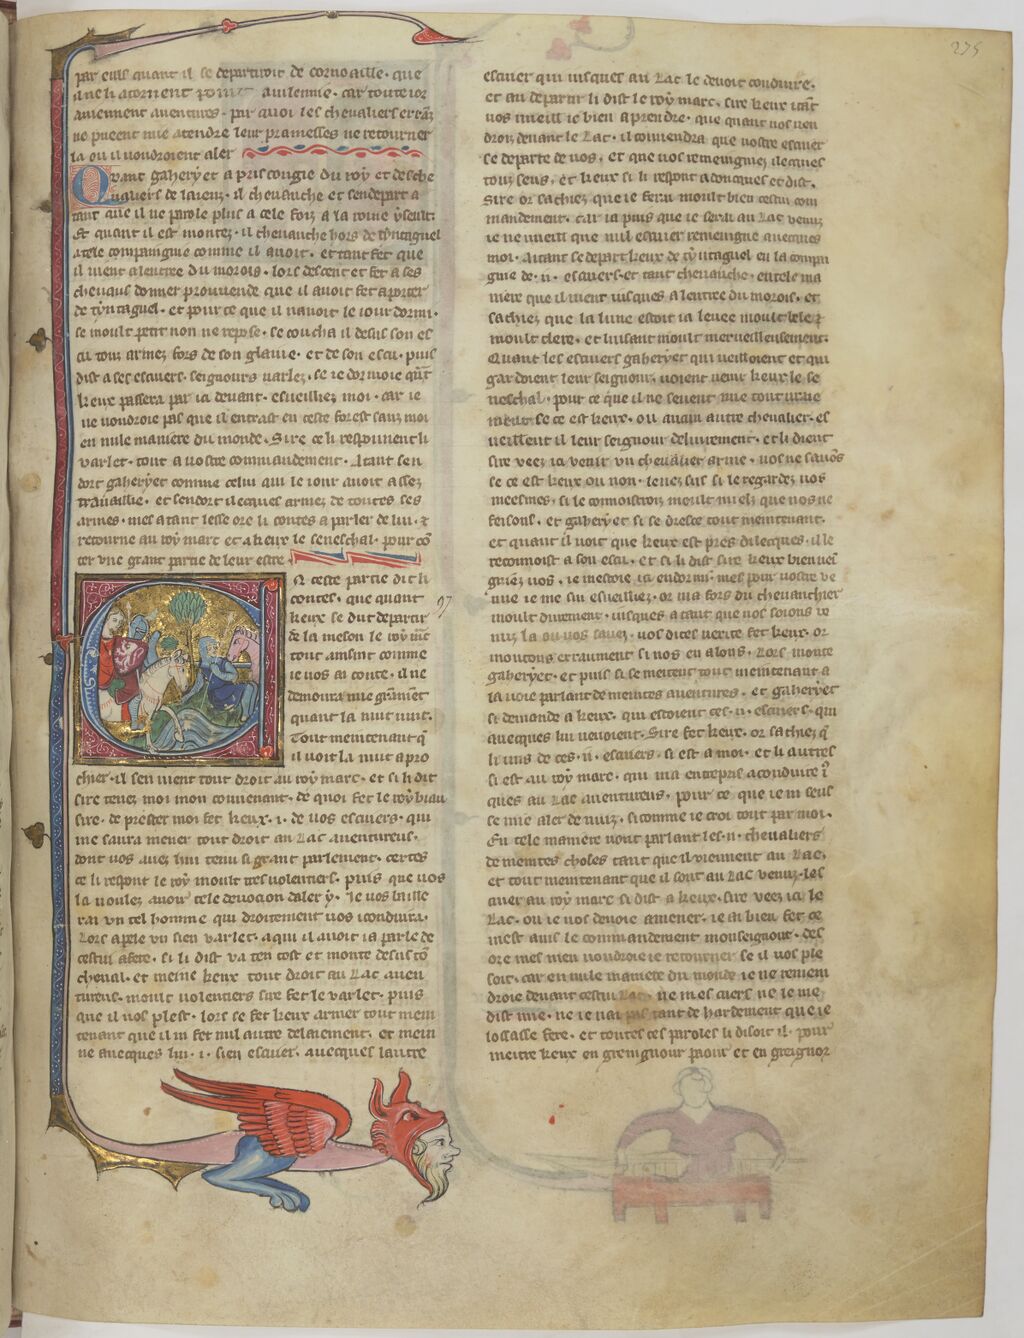 275
par euls quant il se departiroit de cornoaille. que
il ne li atornent point a uilennie. car toute ior
auiennent auentures. par quoi les cheualiers erranz
ne pueent mie atendre leur pramesses ne retourner
la ou il uoudroient aler
Quant gaheryet a pris congie du roy et desche
uauchers de laienz. il cheuauche et sen depart a
tant que il ne parole plus a cele foiz a la roine yseult.
Et quant il est montez. il cheuauche hors de tyntaguel
a tele compaingnie comme il auoit. et tant fet que
il uient a lentree du morois. lors descent et fet a ses
cheuaus donner prouuende que il auoit fet aporter
de tyntaguel. et pour ce que il nauoit le iour dormi.
se moult petit non ne repose. se coucha il desus son es
cu touz armez fors de son glaiue. et de son escu. puis
dist a ses escuiers. seignours uarlez. se ie dormoie quant
keux passera par ici deuant. esueilliez moi. car ie
ne uoudroie pas que il entrast en ceste forest sanz moi
en nule maniere du monde. Sire ce li responnent li
uarlet. tout a uostre commandement. Atant sen
dort gaheryet comme celui qui le iour auoit assez
trauaillie. et sendort ilecques armez de toutes ses
armes. mes atant lesse ore li contes a parler de lui. &
retourne au roy marc et a keux le seneschal. pour con
ter une grant partie de leur estre
En ceste partie dit li
contes. que quant
keux se dut departir
de la meson le roy marc
tout ainsint comme
ie uos ai conte. il ne
demoura mie granment
quant la nuit uint.
Tout meintenant que
il uoit la nuit apro
chier. il sen uient tout droit au roy marc. et si li dit
sire tenez moi mon couuenant. de quoi fet le roy biau
sire. de prester moi fet keux. i. de uos escuiers. qui
me saura mener tout droit au Lac auentureus.
dont uos auez hui tenu si grant parlement. certes
ce li respont le roy moult tres uolentiers. puis que uos
la uoulez auoir tele deuocion daler y. Je uos baille
rai un tel homme qui droitement uos i conduira.
Lors apele un sien uarlet. a qui il auoit ia parle de
cestui afere. si li dist ua ten tost et monte desus ton
cheual. et meine keux tout droit au Lac auen
tureus. moult uolentiers sire fet le uarlet. puis
que il uos plest. lors se fet keux armer tout mein
tenant que il ni fet nul autre delaiement. et mein
ne auecques lui. i. sien escuier. auecques lautre
escuier qui iusques au Lac le deuoit conduire.
et au departir li dist le roy marc. sire keux itant
uos uueill ie bien aprendre. que quant uos uen
droiz deuant le Lac. il couuendra que uostre escuier
se departe de uos. et que uos remeingniez ilecques
touz seus. et keux si li respont adoncques et dist.
Sire or sachiez que ie ferai moult bien cestui com
mandement. car ia puis que ie serai au Lac uenuz
ie ne uueill que nul escuier remeingne auecques
moi. Atant se depart keux de tyntaguel en la compai
gnie de. ii. escuiers. et tant cheuauche. en tele ma
niere que il uient iusques a lentree du morois. et
sachiez que la lune estoit ia leuee moult bele &
moult clere. et luisant moult merueilleusement.
Quant les escuiers gaheryet qui ueilloient et qui
gardoient leur seignour. uoient uenir keux le se
neschal. pour ce que il ne seuent mie tout uraie
ment se ce est keux. ou aucun autre cheualier. es
ueillent il leur seignour deliurement. et li dient
sire ueez ici uenir un cheualier arme. nos ne sauons
se ce est keux ou non. leuez sus si le regardez uos
meesmes. si le connoistroiz moult mielz que nos ne
feisons. et gaheryet si se dresce tout meintenant.
et quant il uoit que keux est pres dilecques. il le
reconnoist a son escu. et si li dist sire keux bien uei
gniez uos. ie mestoie ici endormi. mes pour uostre ue
nue ie me sui esueilliez. or ina fors du cheuauchier
moult durement. iusques a tant que nos soions ue
nuz la ou uos sauez. uos dites uerite fet keux. or
montons erraument si nos en alons. Lors monte
gaheryet. et puis si se metent tout meintenant a
la uoie parlant de meintes auentures. et gaheryet
si demande a keux. qui estoient ces. ii. escuiers. qui
auecques lui uenoient. Sire fet keux. or sachiez que
li uns de ces. ii. escuiers. si est a moi. et li autres
si est au roy marc. qui ma entrepris a conduire i
ques au Lac auentureus. pour ce que ie ni seus
se mie aler de nuiz. si comme ie croi tout par moi.
En tele maniere uont parlant les. ii. cheualiers
de meintes choses tant que il uiennent au Lac.
et tout meintenant que il sont au Lac uenuz. les
cuier au roy marc si dist a keux. sire ueez ici le
Lac. ou ie uos deuoie amener. ie ai bien fet ce
mest auis le commandement monseignour. des
ore mes men uoudroie ie retourner se il uos ple
soit. car en nule maniere du monde ie ne remein
droie deuant cestui Lac. ne mes cuers ne ie me
dist mie. ne ie nai pas tant de hardement que ie
losasse fere. et toutes ces paroles li disoit il. pour
meitre keux en greingnour paour et en greignor